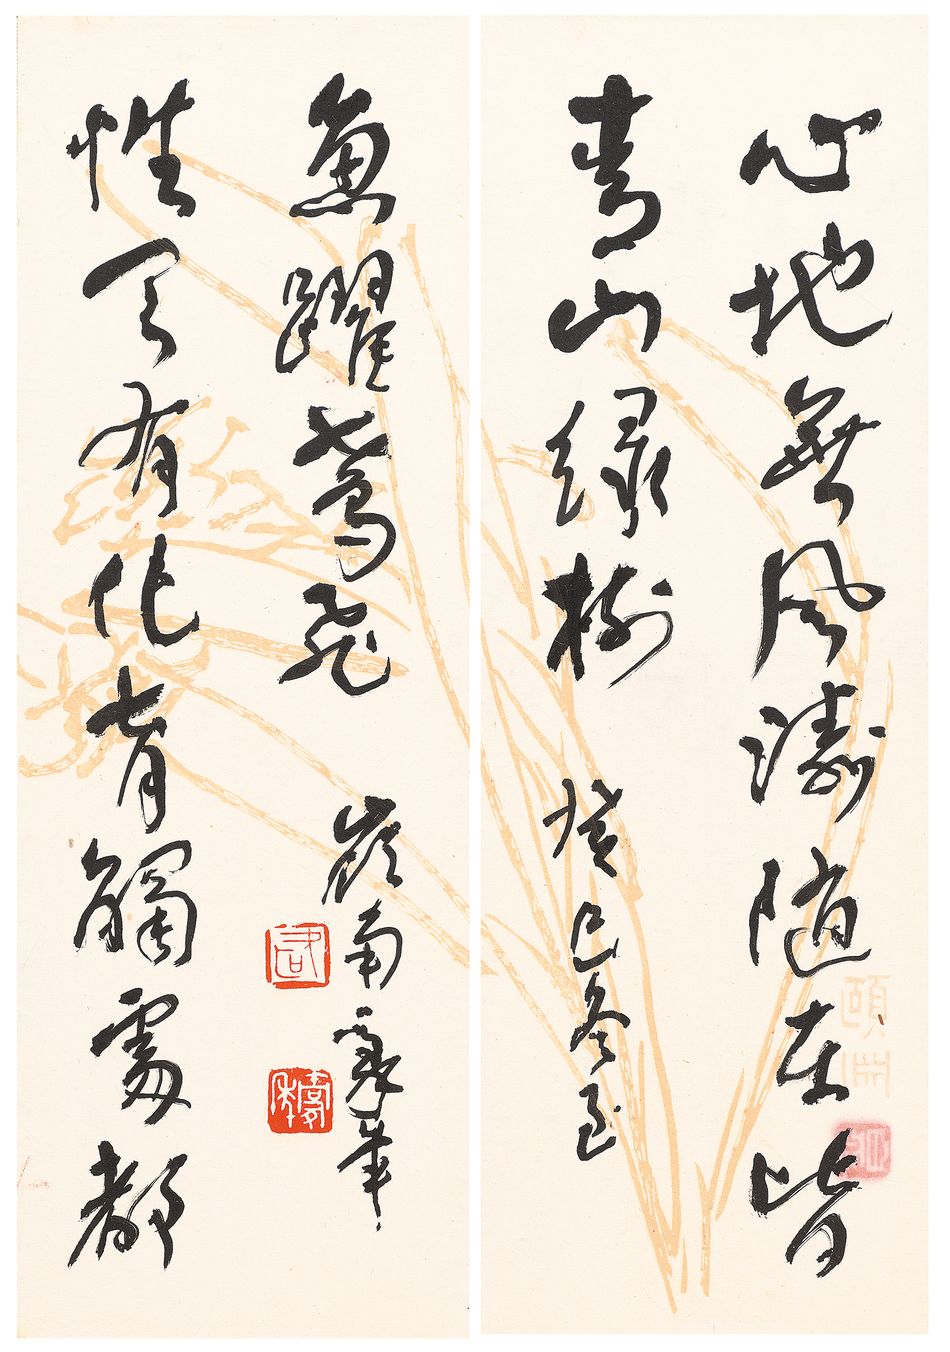 心地無風濤隨在皆
青山綠樹 癸巳冬至
頤淵
性天有化育觸處都
魚躍鳶飛 嶺南